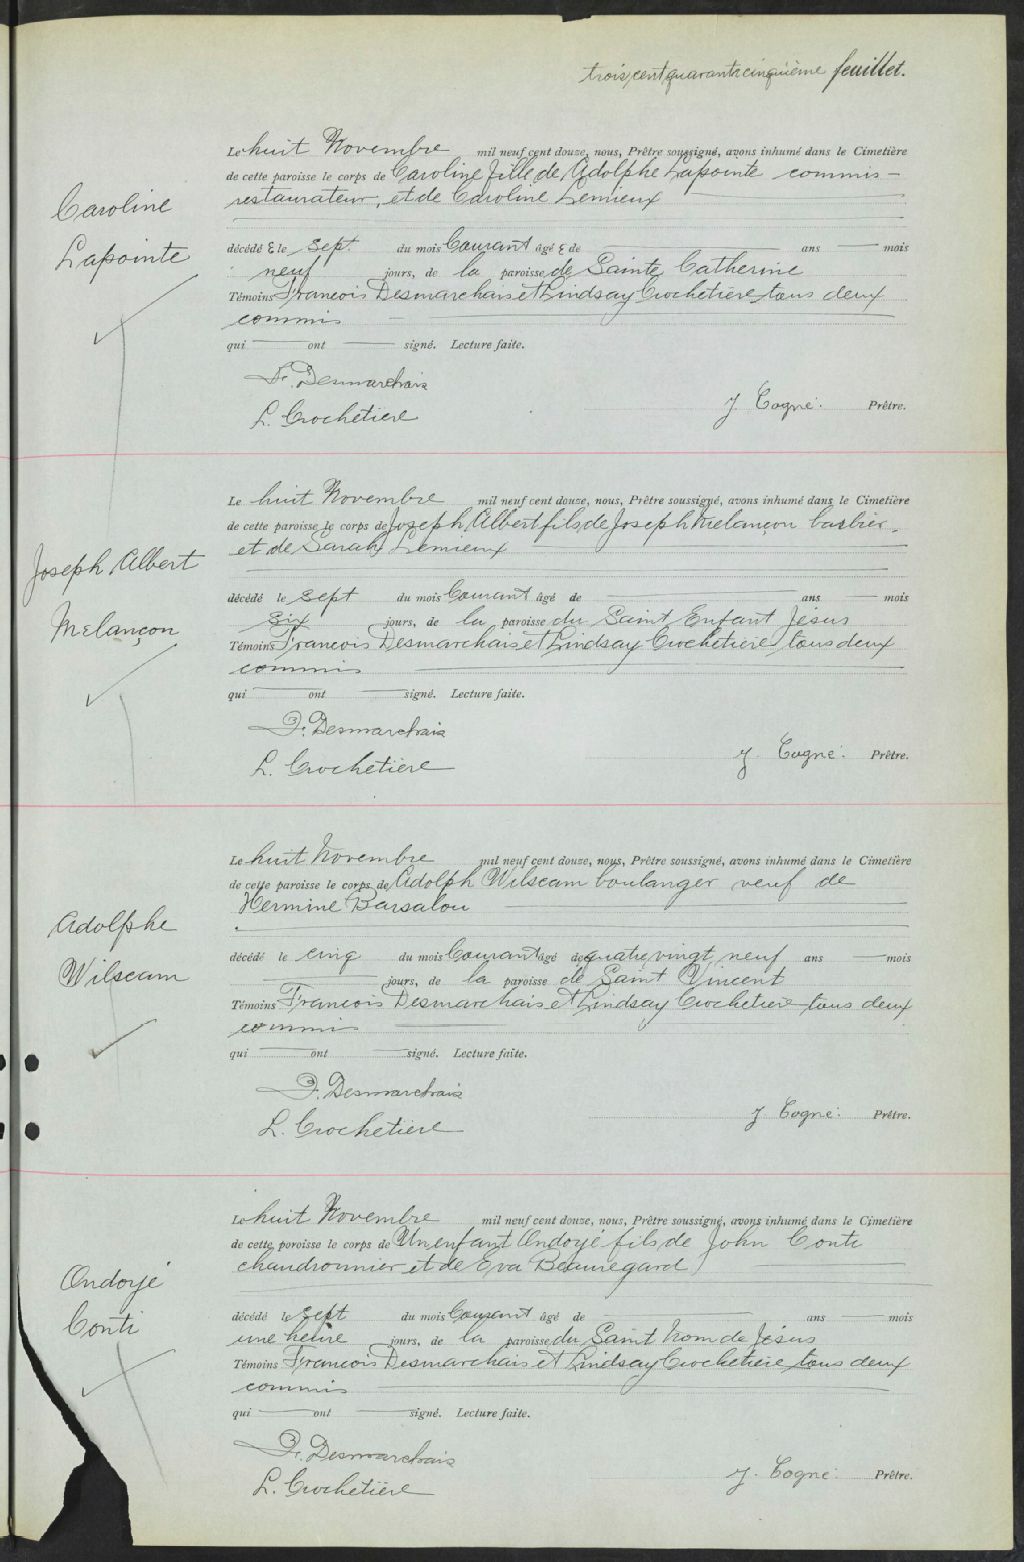 trois cent quarante cinquième feuillet.
Caroline
Lapointe
Le huit Novembre mil neuf cent douze, nous, Prêtre soussigné, avons inhumé dans le Cimetière
de cette paroisse le corps de Caroline fille de Adolphe Lapointe commis-
restaurateur, et de Caroline Lemieux
décédé e le sept du mois Courant âgé e de ans mois
neuf jours, de la paroisse de Sainte Catherine
Témoins Francois Desmarchais et Lindsay Crochetière tous deux
commis
qui ont signé. Lecture faite.
F. Desmarchais
L. Crochetiere
J. Cogné. Prêtre.
Joseph Albert
Melançon
Le huit Novembre mil neuf cent douze, nous, Prêtre soussigné, avons inhumé dans le Cimetière
de cette paroisse le corps de Joseph Albert fils de Joseph Melançon barbier
et de Sarah Lemieux
décédé le sept du mois Courant âgé de ans mois
six jours, de la paroisse du Saint Enfant Jésus
Témoins Francois Desmarchais et Lindsay Crochetière tous deux
commis
qui ont signé. Lecture faite.
F. Desmarchais
L. Crochetière
J. Cogné. Prêtre.
Adolphe
Wilscam
Le huit Novembre mil neuf cent douze, nous, Prêtre soussigné, avons inhumé dans le Cimetière
de cette paroisse le corps de Adolph Wilscam boulanger veuf de
Hermine Barsalou
décédé le cinq du mois Courant âgé de quatre vingt neuf ans mois
jours, de la paroisse de Saint Vincent
Témoins Francois Desmarchais et Lindsay Crochetiere tous deux
commis
qui ont signé. Lecture faite.
F. Desmarchais
L. Crochetiere
J. Cogné. Prêtre.
Ondoyé
Conti
Le huit Novembre mil neuf cent douze, nous, Prêtre soussigné, avons inhumé dans le Cimetière
de cette paroisse le corps de Un enfant Ondoyé fils de John Conti
chaudronnier et de Eva Beauregard
décédé le sept du mois Courant âgé de ans mois
une heure jours, de la paroisse du Saint Nom de Jésus
Témoins Francois Desmarchais et Lindsay Crochetière tous deux
commis
qui ont signé. Lecture faite.
F. Desmarchais
L. Crochetière
J. Cogné. Prêtre.